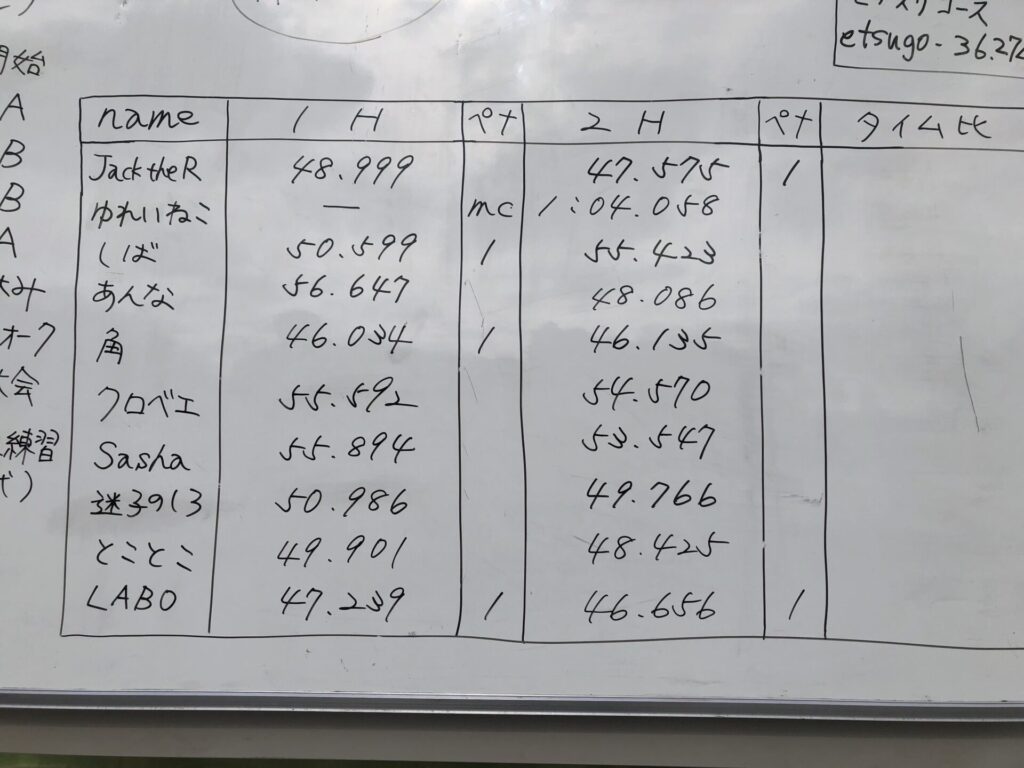 コース
etsugo - 36.27
開始
A
B
B
A
オーク
大会
練習
name 1 H ペナ 2 H ペナ タイム比
JacktheR 48.999 47.575 1
ゆれいねこ — mc 1:04.058
しば 50.599 1 55.423
あんな 56.647 48.086
角 46.034 1 46.135
クロベエ 55.592 54.570
Sasha 55.894 53.547
迷子のくろ 50.986 49.766
とことこ 49.901 48.425
LABO 47.239 1 46.656 1